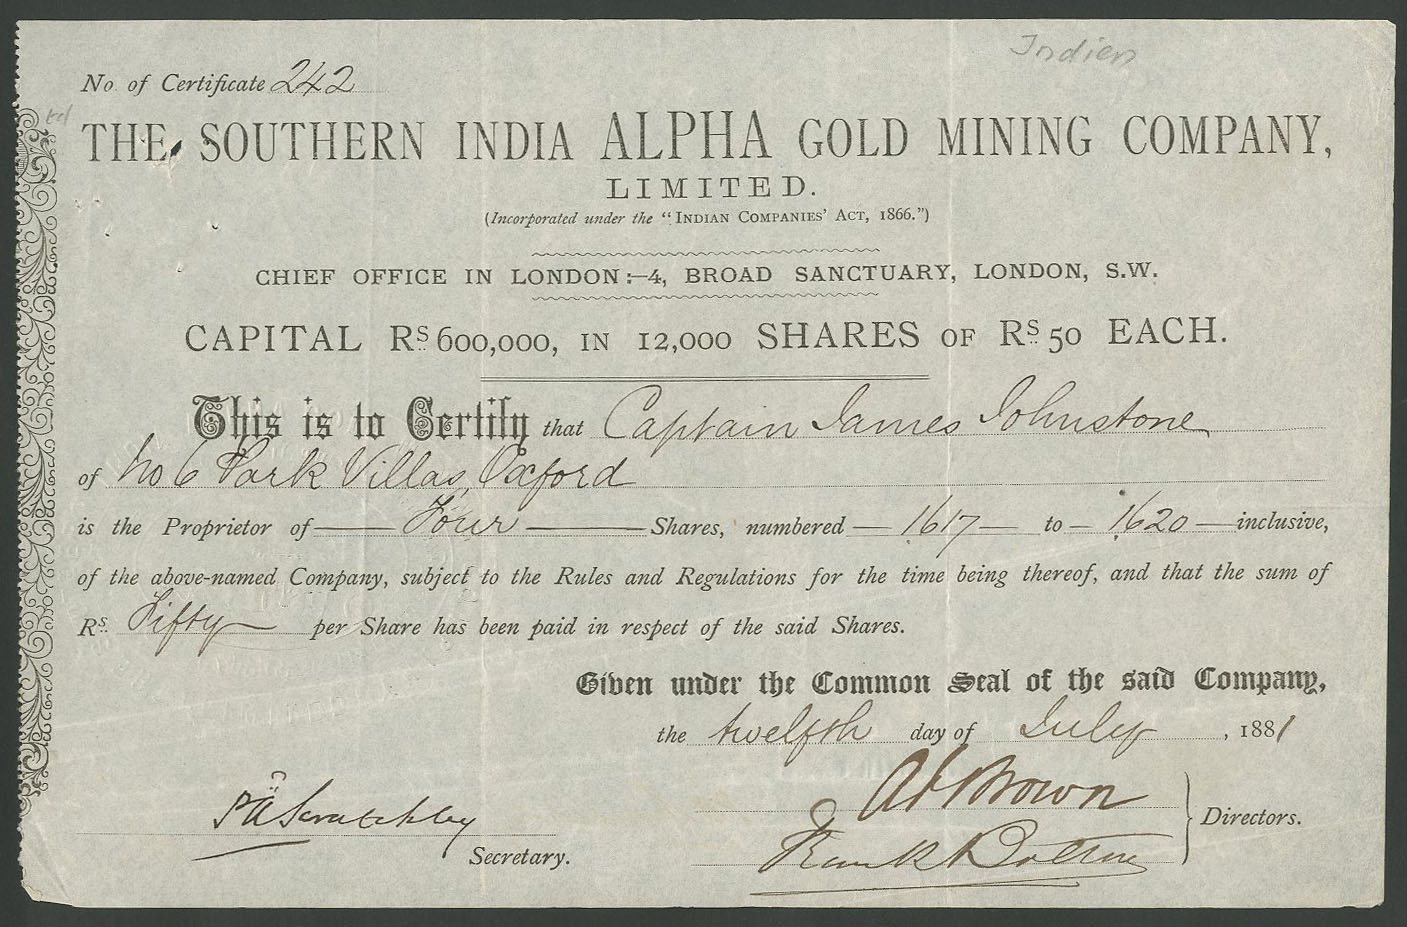 Indien
No. of Certificate 242
THE SOUTHERN INDIA ALPHA GOLD MINING COMPANY,
LIMITED.
(Incorporated under the "INDIAN COMPANIES' ACT, 1866.")
CHIEF OFFICE IN LONDON:—4, BROAD SANCTUARY, LONDON, S.W.
CAPITAL RS. 600,000, IN 12,000 SHARES OF RS. 50 EACH.
This is to Certify that Captain James Johnstone
of No 6 Park Villas, Oxford
is the Proprietor of Four Shares, numbered 1617 to 1620 inclusive,
of the above-named Company, subject to the Rules and Regulations for the time being thereof, and that the sum of
Rs. Fifty per Share has been paid in respect of the said Shares.
Given under the Common Seal of the said Company,
the twelfth day of July, 1881
Brown
Scratchley
Directors.
Frank
Secretary.